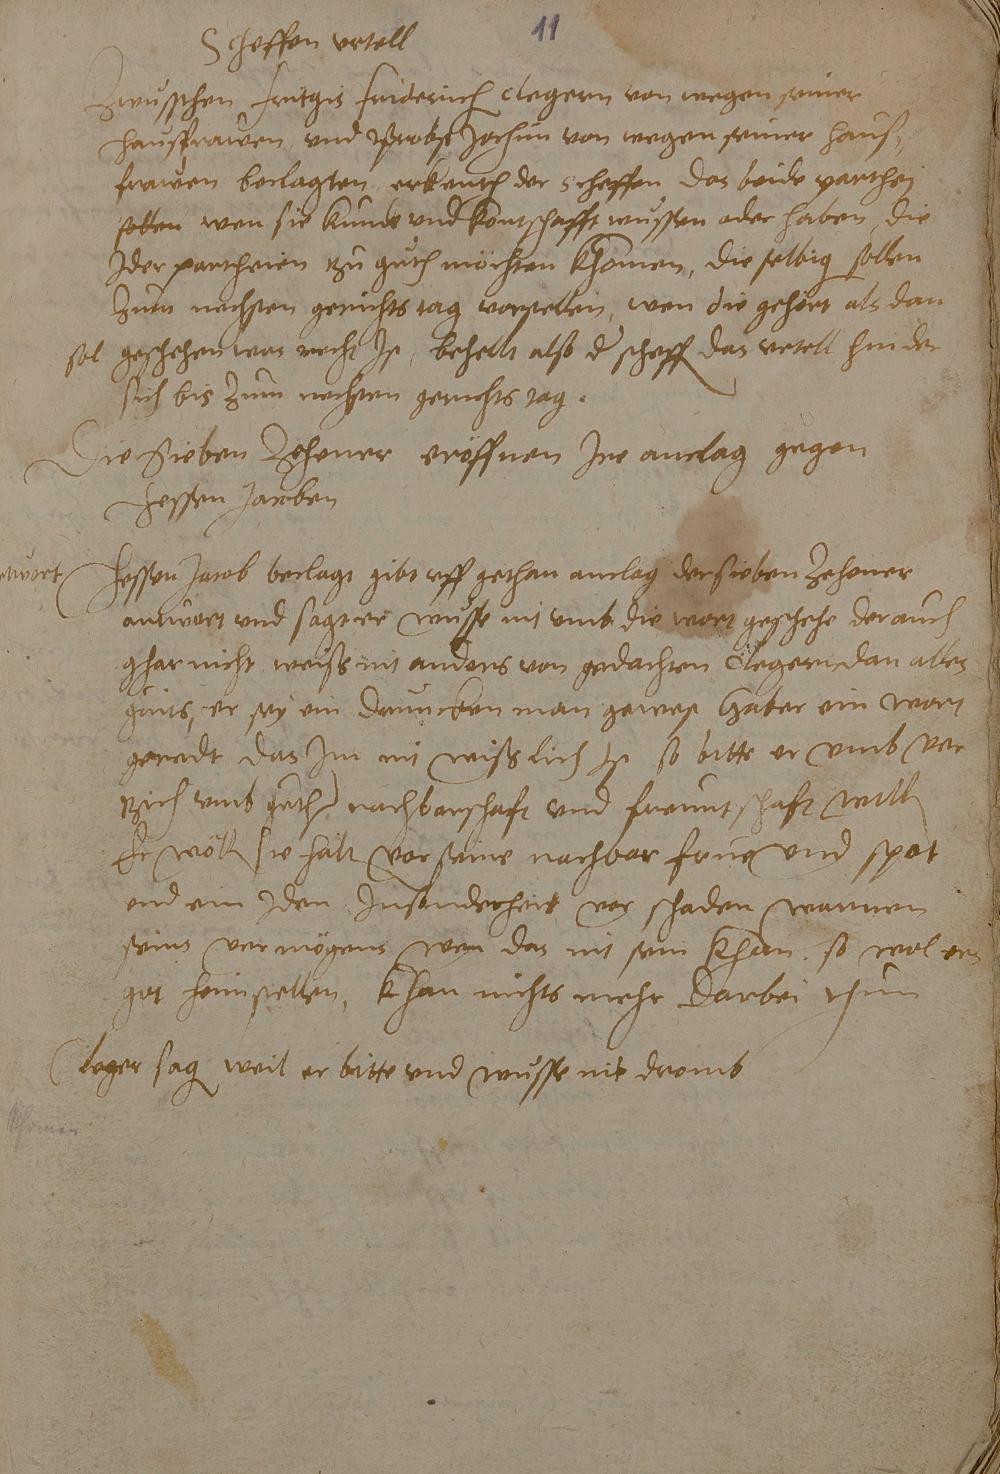 11
Scheffen urtell
Zwusschen Fritgis Friderich clegern von wegen seiner
hausfrawen und Probst Jochim von wegen seiner haus-
frawen beclagten erkenth der scheffen das beide parthei
sollen wen sie kunde und kontschafft wussen oder haben, die
Jder partheien zu guth möchten khomen, die selbig sollen
zum nechsten gerichts tag vorstellen, wen die gehört als dan
sol geschehen was recht Jst, behellt also d scheff das urtell hinder
sich bis zum nechsten gerichts tag.
Die Sieben Zehener eröffnen Jre anclag gegen
Hessen Jacoben
Hessen Jacob beclagt gibt uff gethan anclag der sieben Zehener
antwort und sagt er wusse nit umb die wort geschehe der auch
ghar nicht weiss nit anders von gedachten clegern dan alles
guits, er sey ein druncken man gewest haber ein wort
geredt das Jm nit wißlich Jst so bitte er umb ver
zich umb guth nachbarschaft und freuntschaft will
Er wöll sie halt vor seine nachbar frue und spat
und ein Jden Jnsonderheit vor schaden warnen
seins vermögens wen das nit sein khan so wol ers
got heimstellen, khan nichts mehr darbei thun
Cleger sag weil er bitte und wusse nit dromb